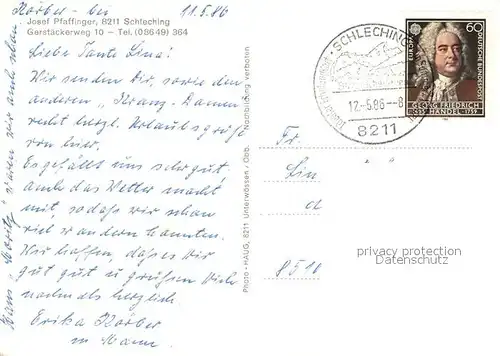 Körber - bei 11.5.86
Josef Pfaffinger, 8211 Schleching
Garstäckerweg 10 – Tel. (08649) 364
Liebe Tante Lina!
Wir senden Dir, sowie den
anderen „Kranz-Damen"
recht herzl. Urlaubsgrüße
von hier.
Es gefällt uns sehr gut
auch das Wetter macht
mit, sodaß wir schon
viel wandern konnten.
Wir hoffen, daß es Dir
gut geht u. grüßen Dich
nochmals herzlich
Erika Körber
u. Mann
Hans Moritz waren wir auch schon
Photo-HAUG, 8211 Unterwössen / Obb. Nachbildung verboten
SCHLECHING
12.-5.86--8
8211
EUROPA
60
DEUTSCHE BUNDESPOST
GEORG FRIEDRICH
HÄNDEL 1685-1759
Fr.
Lin
8510
privacy protection
www.ansichtskartenversand.com